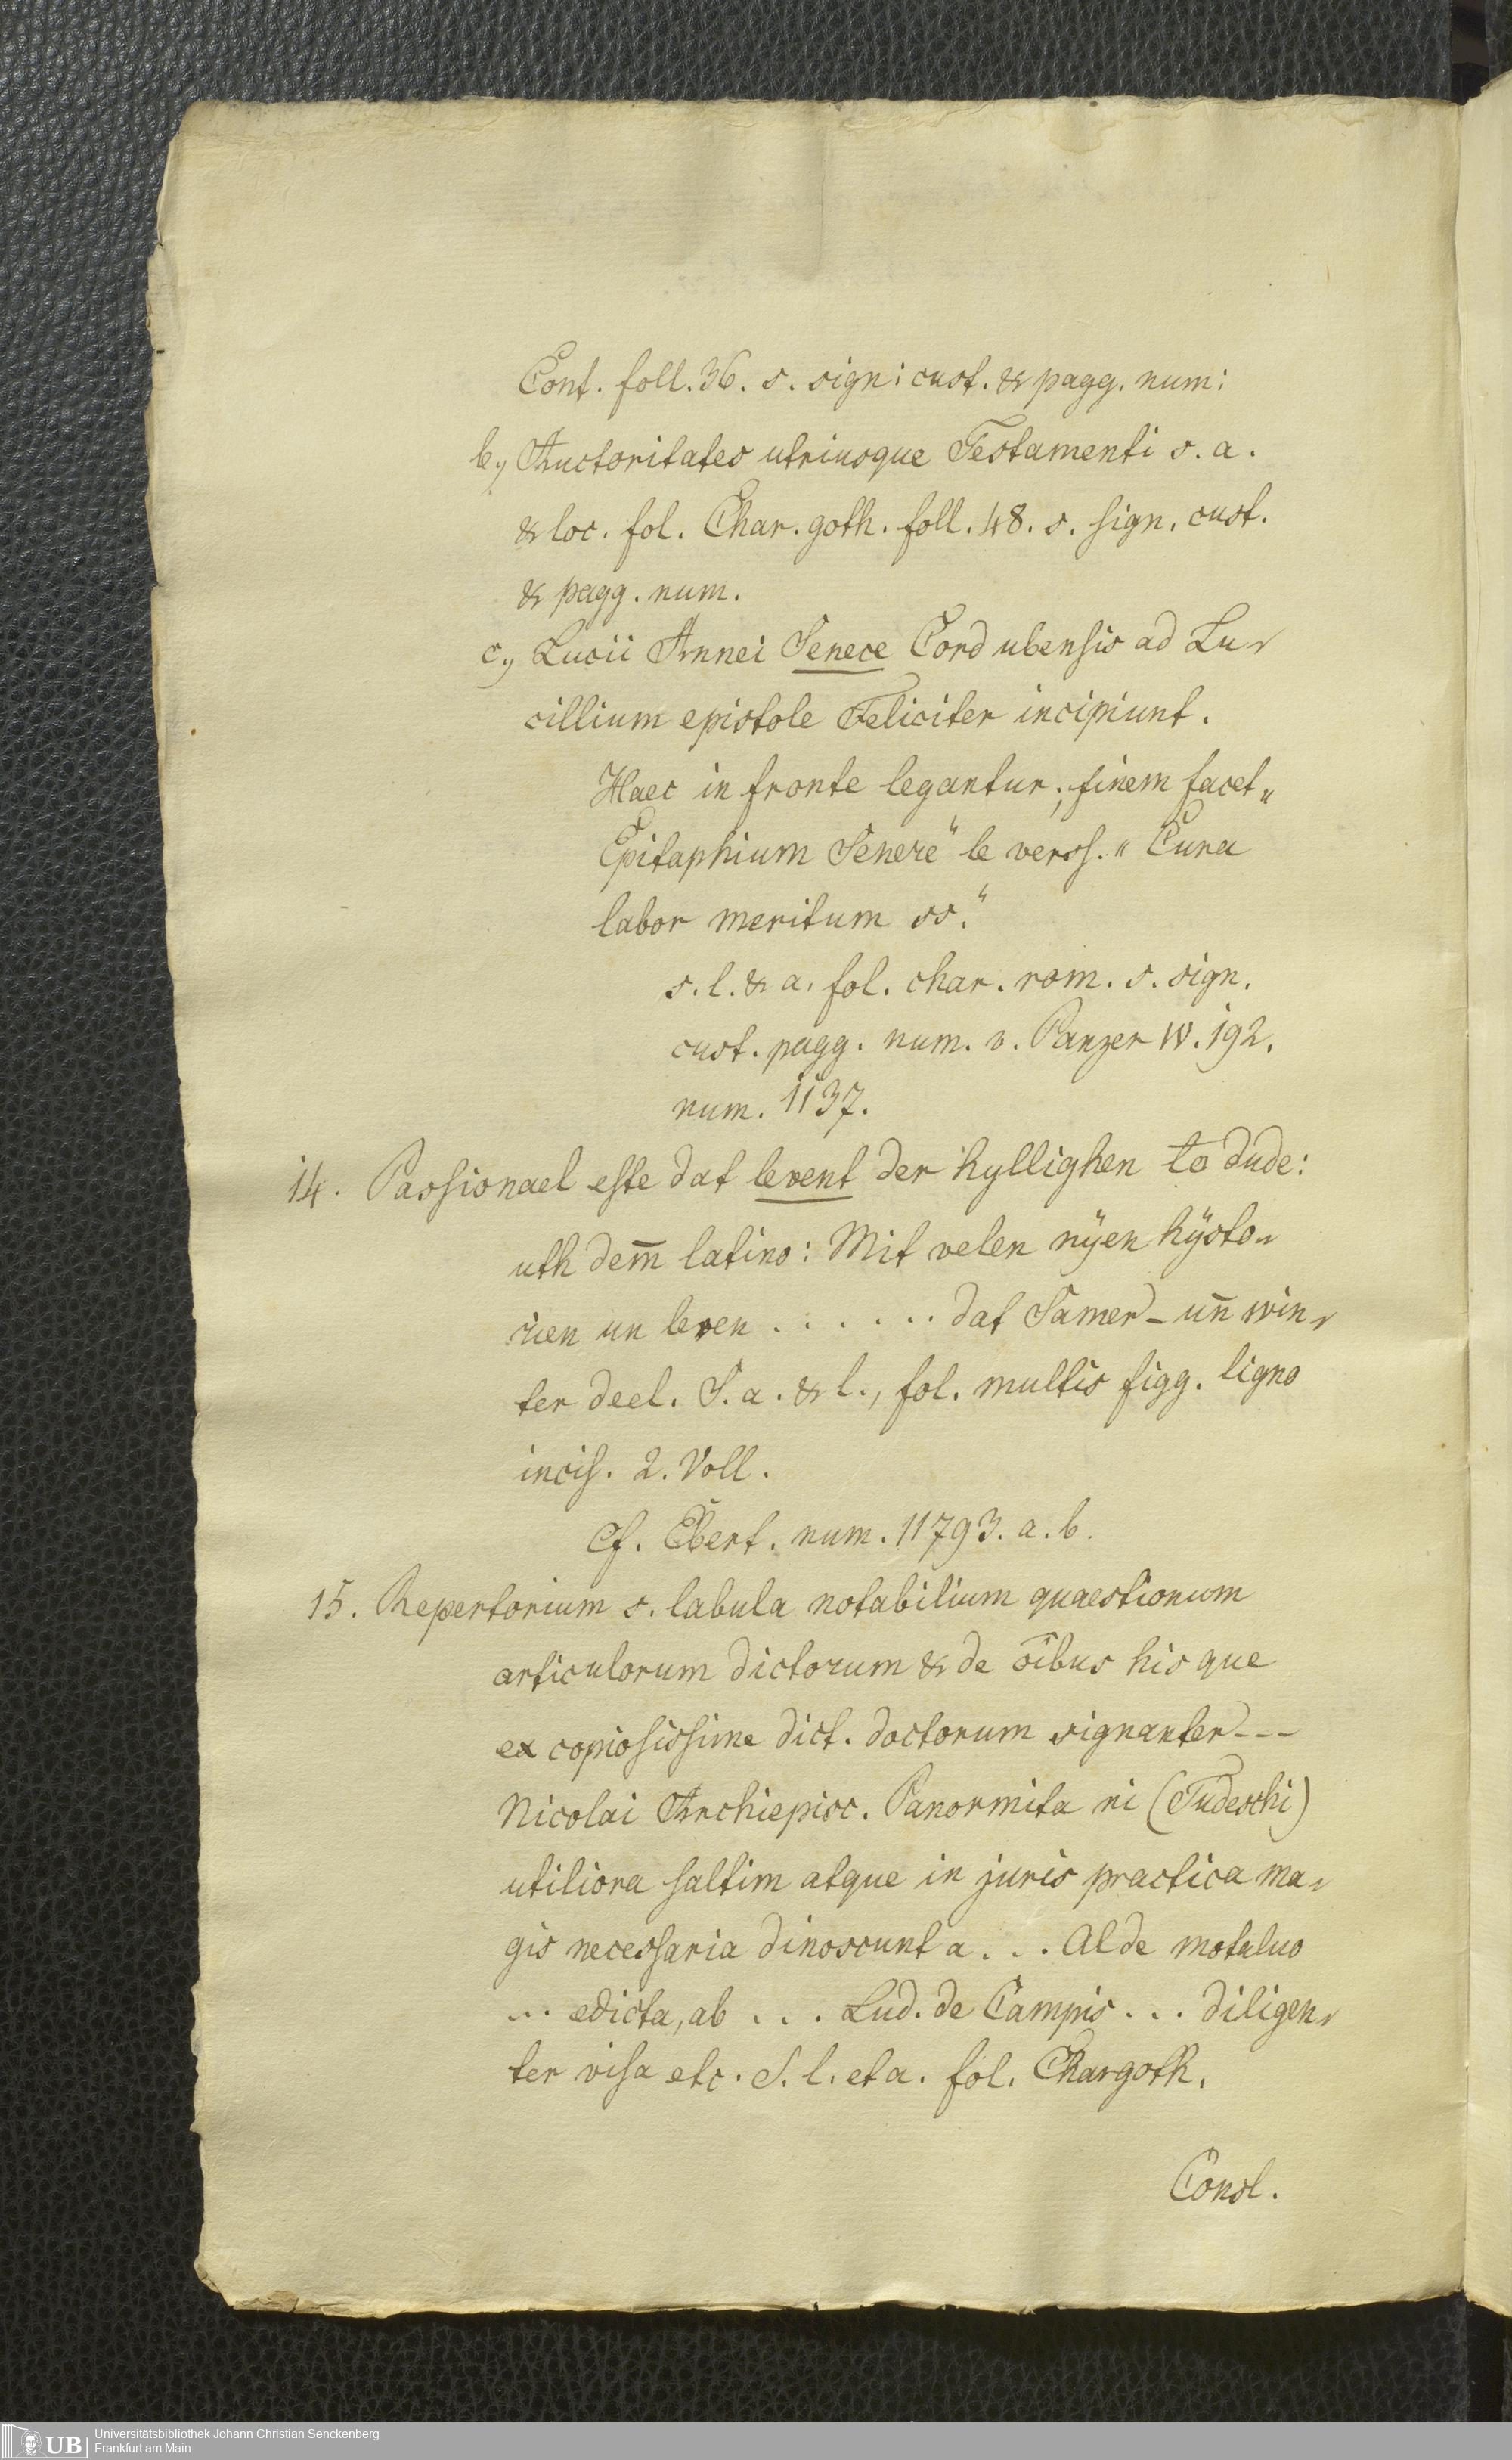 Cont. foll. 36. s. sign: cust. & pagg. num:
b, Auctoritates utriusque Testamenti s. a.
& loc. fol. Char. goth. foll. 48. s. sign. cust.
& pagg. num.
c, Lucii Annei Senece Cordubensis ad Lu-
cillium epistole Feliciter incipiunt.
Haec in fronte legantur; finem facet „
Epitaphium Senere“ le verss. „ Cura
labor meritum ss.“
s. l. & a. fol. char. rom. s. sign.
cust. pagg. num. v. Panzer IV. 192.
num. 1137.
14. Passionael efte dat levent der hyllighen to dude:
uth dem̅ latino: Mit velen nÿen hÿsto-
rien un leven . . . . . . dat Samer- un̅ win-
ter deel. S. a. & l., fol. multis figg. ligno
incis. 2. Voll.
Cf. Ebert. num. 11793. a. b.
15. Repertorium s. labula notabilium quaestionum
articulorum dictorum & de oibus his que
ex copiosissime dict. doctorum signanter---
Nicolai Archiepisc. Panormita ni (Tudeschi)
utiliora saltim atque in juris practica ma-
gis necessaria dinoscunt a . . . Alde motaluo
... edicta, ab . . . Lud. de Campis . . . diligen-
ter visa etc. S. l. et a. fol. Chargoth.
Consl.
UB
Universitätsbibliothek Johann Christian Senckenberg
Frankfurt am Main